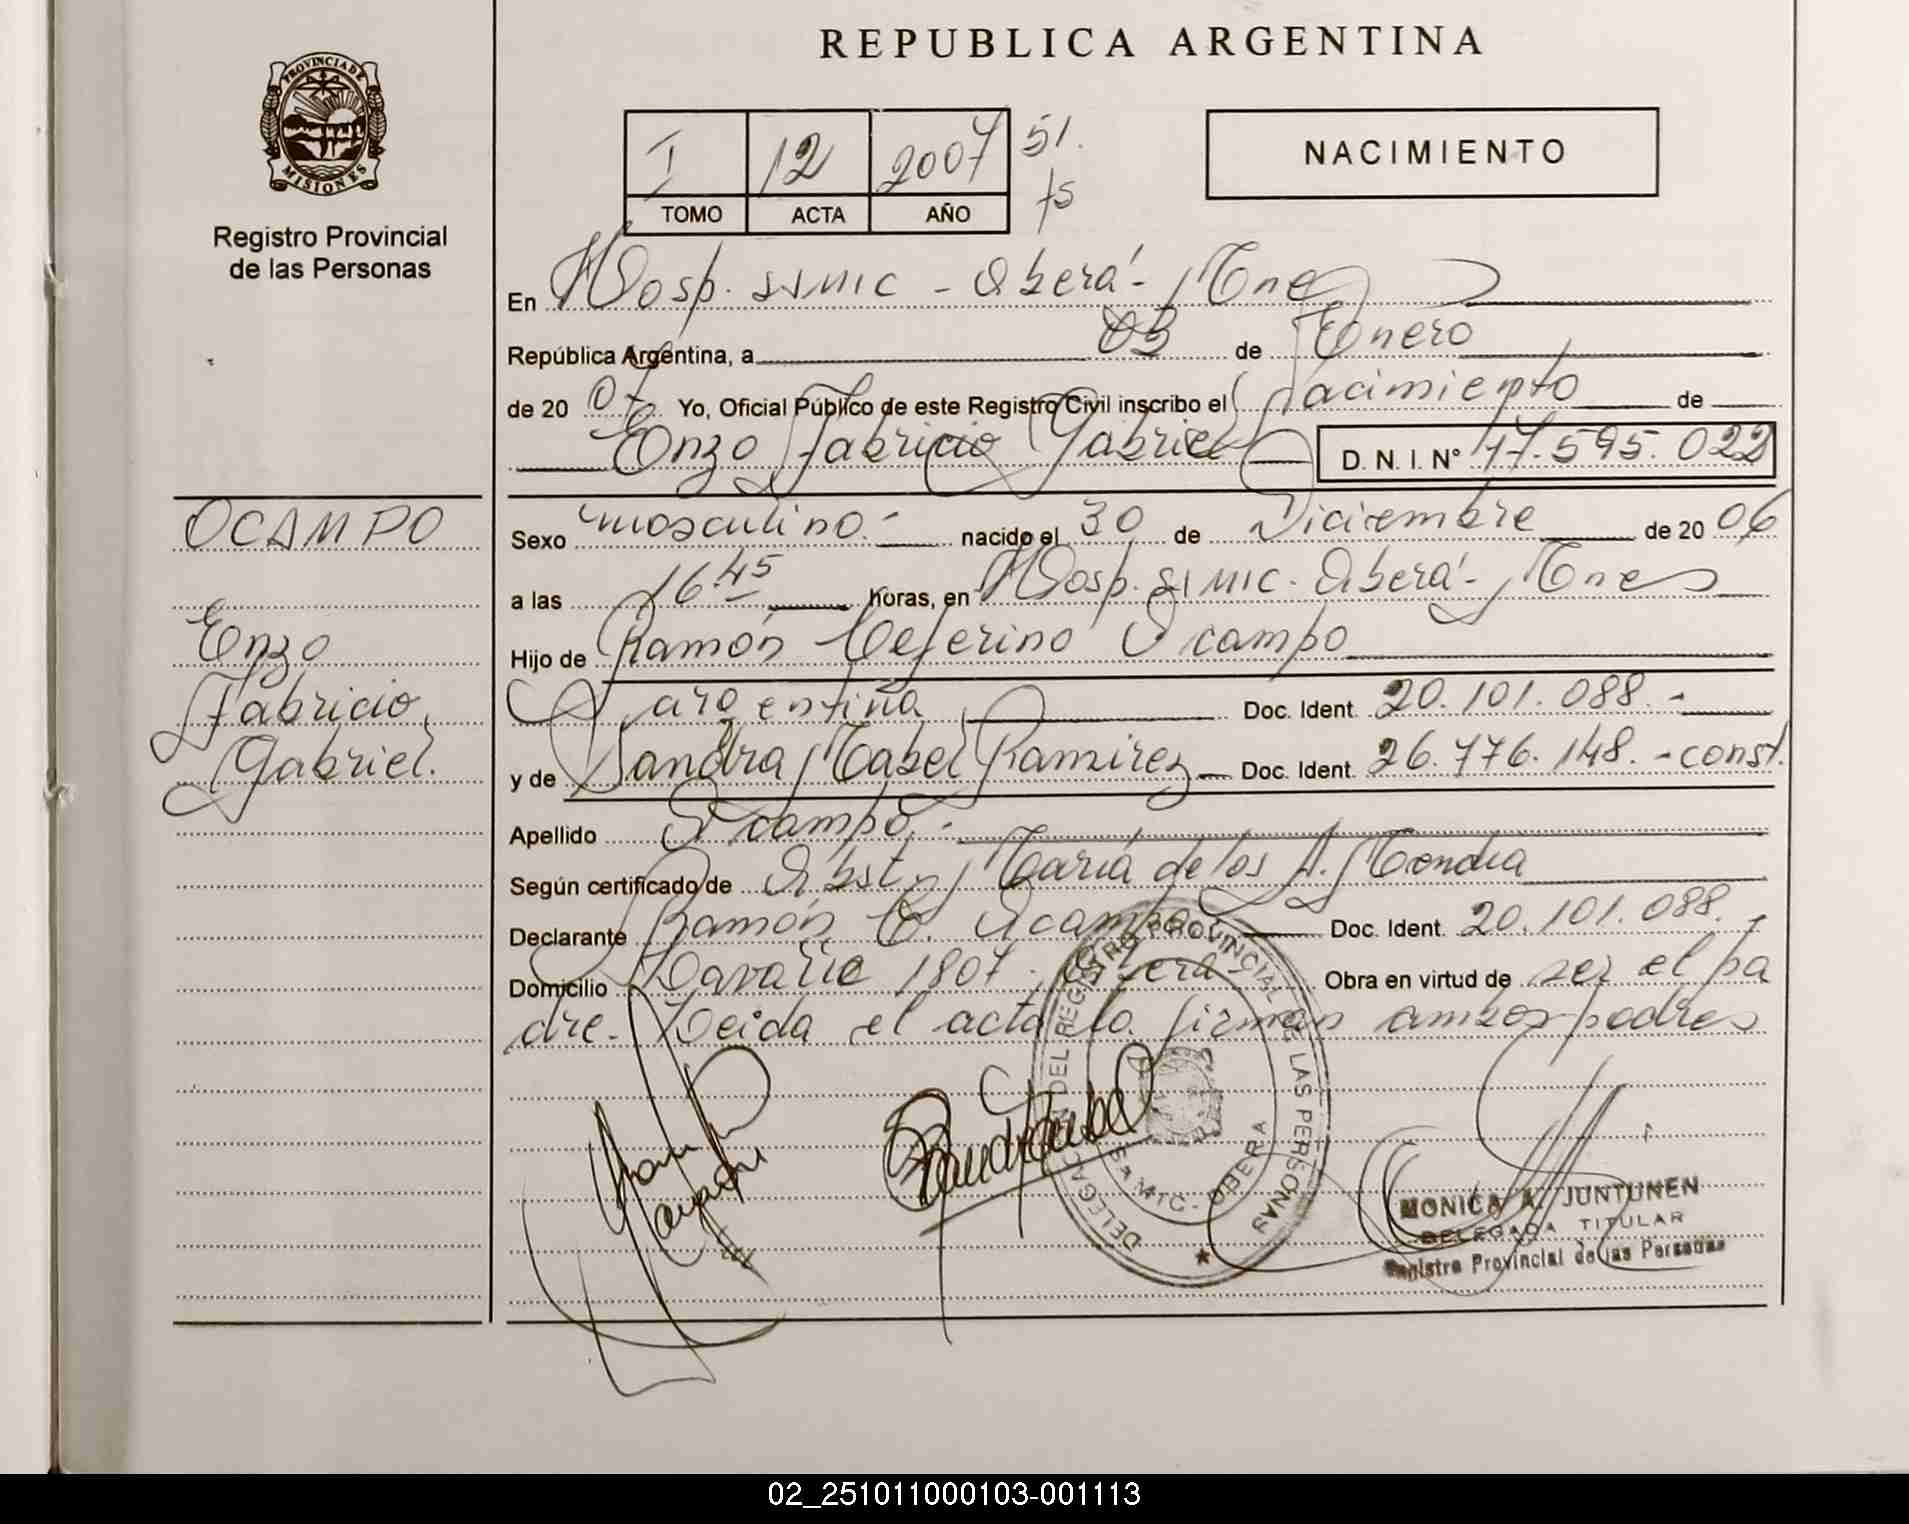 REPUBLICA ARGENTINA
PROVINCIA DE
MISIONES
Registro Provincial
de las Personas
I 12 2007 51.
75
TOMO ACTA AÑO
NACIMIENTO
En Hosp. SAMIC - Oberá - Mnes
República Argentina, a 03 de Enero
de 20 07 Yo, Oficial Público de este Registro Civil inscribo el Nacimiento de
Enzo Fabricio Gabriel D. N. I. N° 47.595.022
OCAMPO
Enzo
Fabricio
Gabriel.
Sexo masculino.- nacido el 30 de Diciembre de 20 06
a las 16.45 horas, en Hosp. SAMIC - Oberá - Mnes
Hijo de Ramón Ceferino Ocampo
argentina Doc. Ident. 20.101.088.-
y de Sandra Mabel Ramirez Doc. Ident. 26.776.148.- const.
Apellido Ocampo.-
Según certificado de Obst. María de los A.
Declarante Ramón C. Ocampo Doc. Ident. 20.101.088.
Domicilio 1807. Oberá Obra en virtud de ser el pa
dre. Leida el acta la firman ambos padres
DELEGACION DEL REGISTRO PROVINCIAL DE LAS PERSONAS
SAMIC - OBERA
MONICA A. JUNTUNEN
DELEGADA TITULAR
Registro Provincial de las Personas
02_251011000103-001113